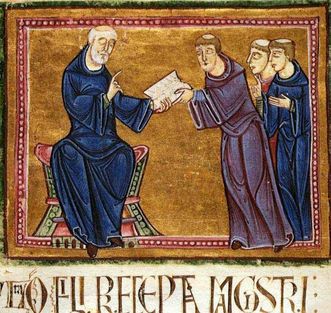 O FILI PRECEPTA MAGISTRI: